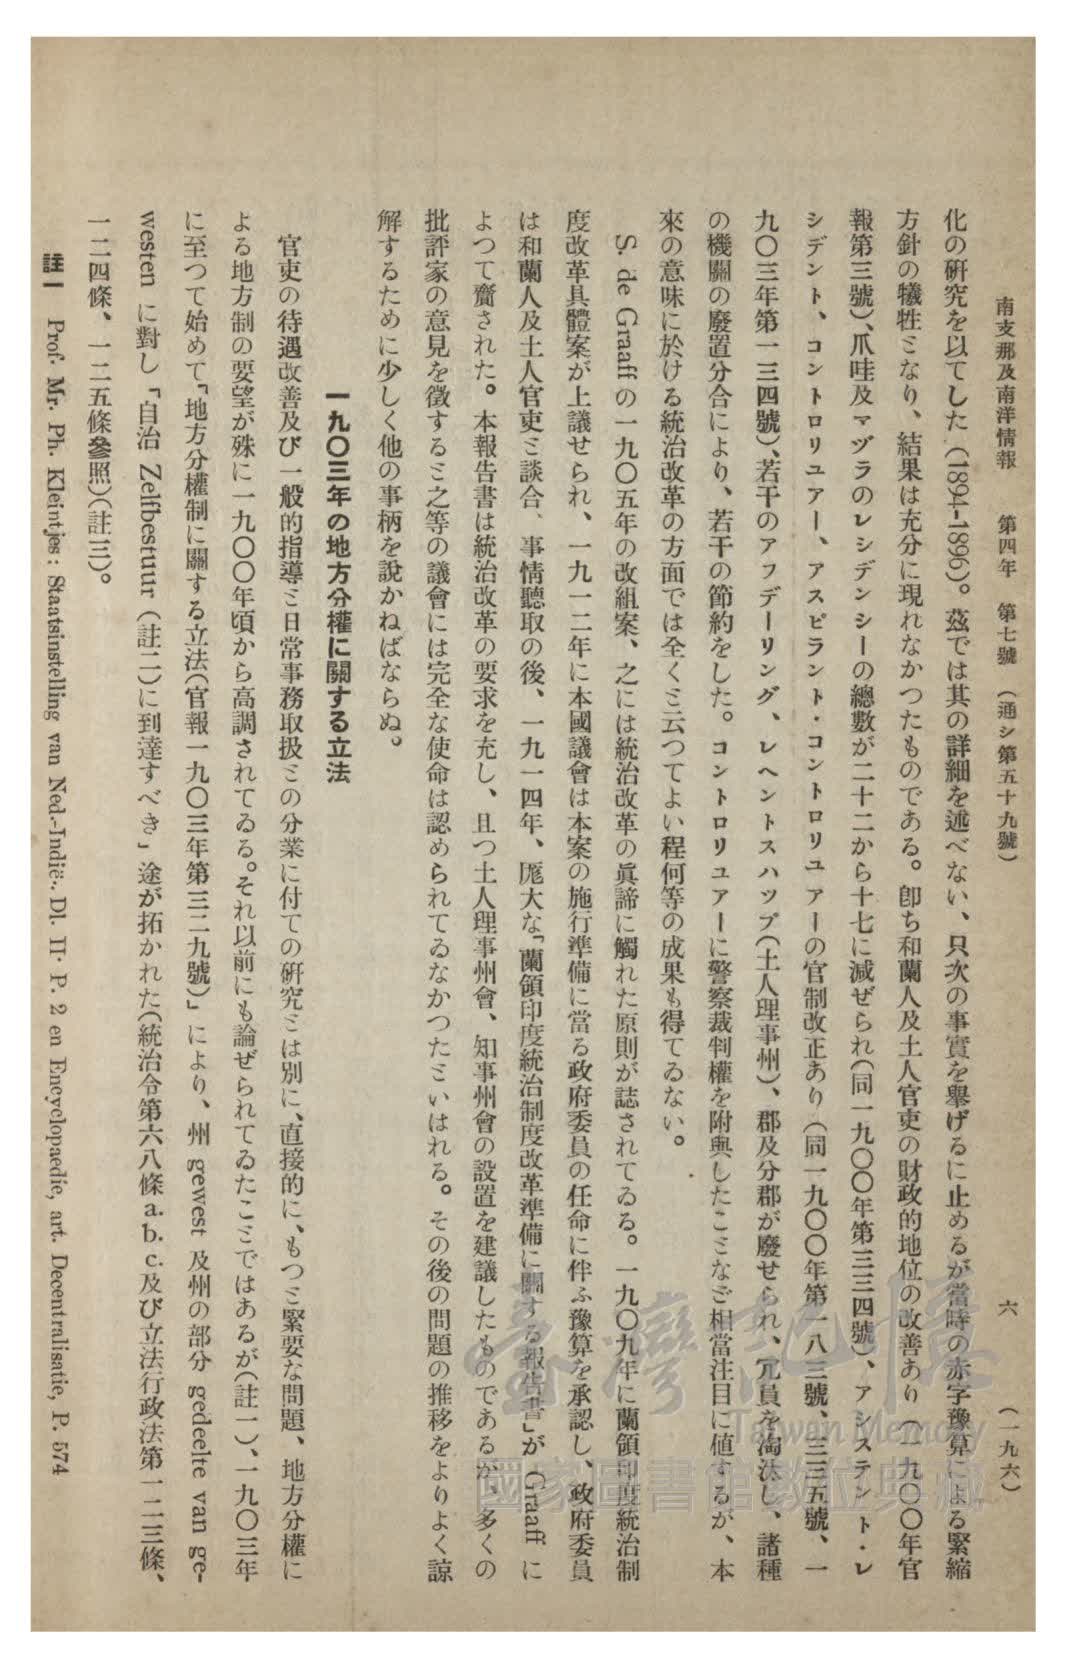 南支那及南洋情報　第四年　第七號　（通シ第五十九號）　六　（一九六）
化の硏究を以てした（1894-1896）。玆では其の詳細を述べない、只次の事實を擧げるに止めるが當時の赤字豫算による緊縮
方針の犧牲となり、結果は充分に現れなかつたものである。卽ち和蘭人及土人官吏の財政的地位の改善あり（一九〇〇年官
報第三號）、爪哇及マヅラのレシデンシーの總數が二十二から十七に減ぜられ（同一九〇〇年第三三四號）、アシステント・レ
シデント、コントロリユアー、アスピラント・コントロリユアーの官制改正あり（同一九〇〇年第一八三號、三三五號、一
九〇三年第一三四號）、若干のアフデーリング、レヘントスハップ（土人理事州）、郡及分郡が廢せられ、冗員を淘汰し、諸種
の機關の廢置分合により、若干の節約をした。コントロリユアーに警察裁判權を附與したことなど相當注目に値するが、本
來の意味に於ける統治改革の方面では全くと云つてよい程何等の成果も得てゐない。
S. de Graaff の一九〇五年の改組案、之には統治改革の眞諦に觸れた原則が誌されてゐる。一九〇九年に蘭領印度統治制
度改革具體案が上議せられ、一九一二年に本國議會は本案の施行準備に當る政府委員の任命に伴ふ豫算を承認し、政府委員
は和蘭人及土人官吏と談合、事情聽取の後、一九一四年、厖大な「蘭領印度統治制度改革準備に關する報告書」が Graaff に
よつて齎された。本報告書は統治改革の要求を充し、且つ土人理事州會、知事州會の設置を建議したものであるが、多くの
批評家の意見を徵すると之等の議會には完全な使命は認められてゐなかつたといはれる。その後の問題の推移をよりよく諒
解するために少しく他の事柄を說かねばならぬ。
一九〇三年の地方分權に關する立法
官吏の待遇改善及び一般的指導と日常事務取扱との分業に付ての硏究とは別に、直接的に、もつと緊要な問題、地方分權に
よる地方制の要望が殊に一九〇〇年頃から高調されてゐる。それ以前にも論ぜられてゐたことではあるが（註一）、一九〇三年
に至つて始めて「地方分權制に關する立法（官報一九〇三年第三二九號）」により、州 gewest 及州の部分 gedeelte van ge-
westen に對し「自治 Zelfbestuur（註二）に到達すべき」途が拓かれた（統治令第六八條a. b. c. 及び立法行政法第一二三條、
一二四條、一二五條參照）（註三）。
註一　Prof. Mr. Ph. Kleintjes : Staatsinstelling van Ned.-Indië. Dl. II. P. 2 en Encyclopaedie, art. Decentralisatie, P. 574
臺灣記憶
Taiwan Memory
國家圖書館數位典藏